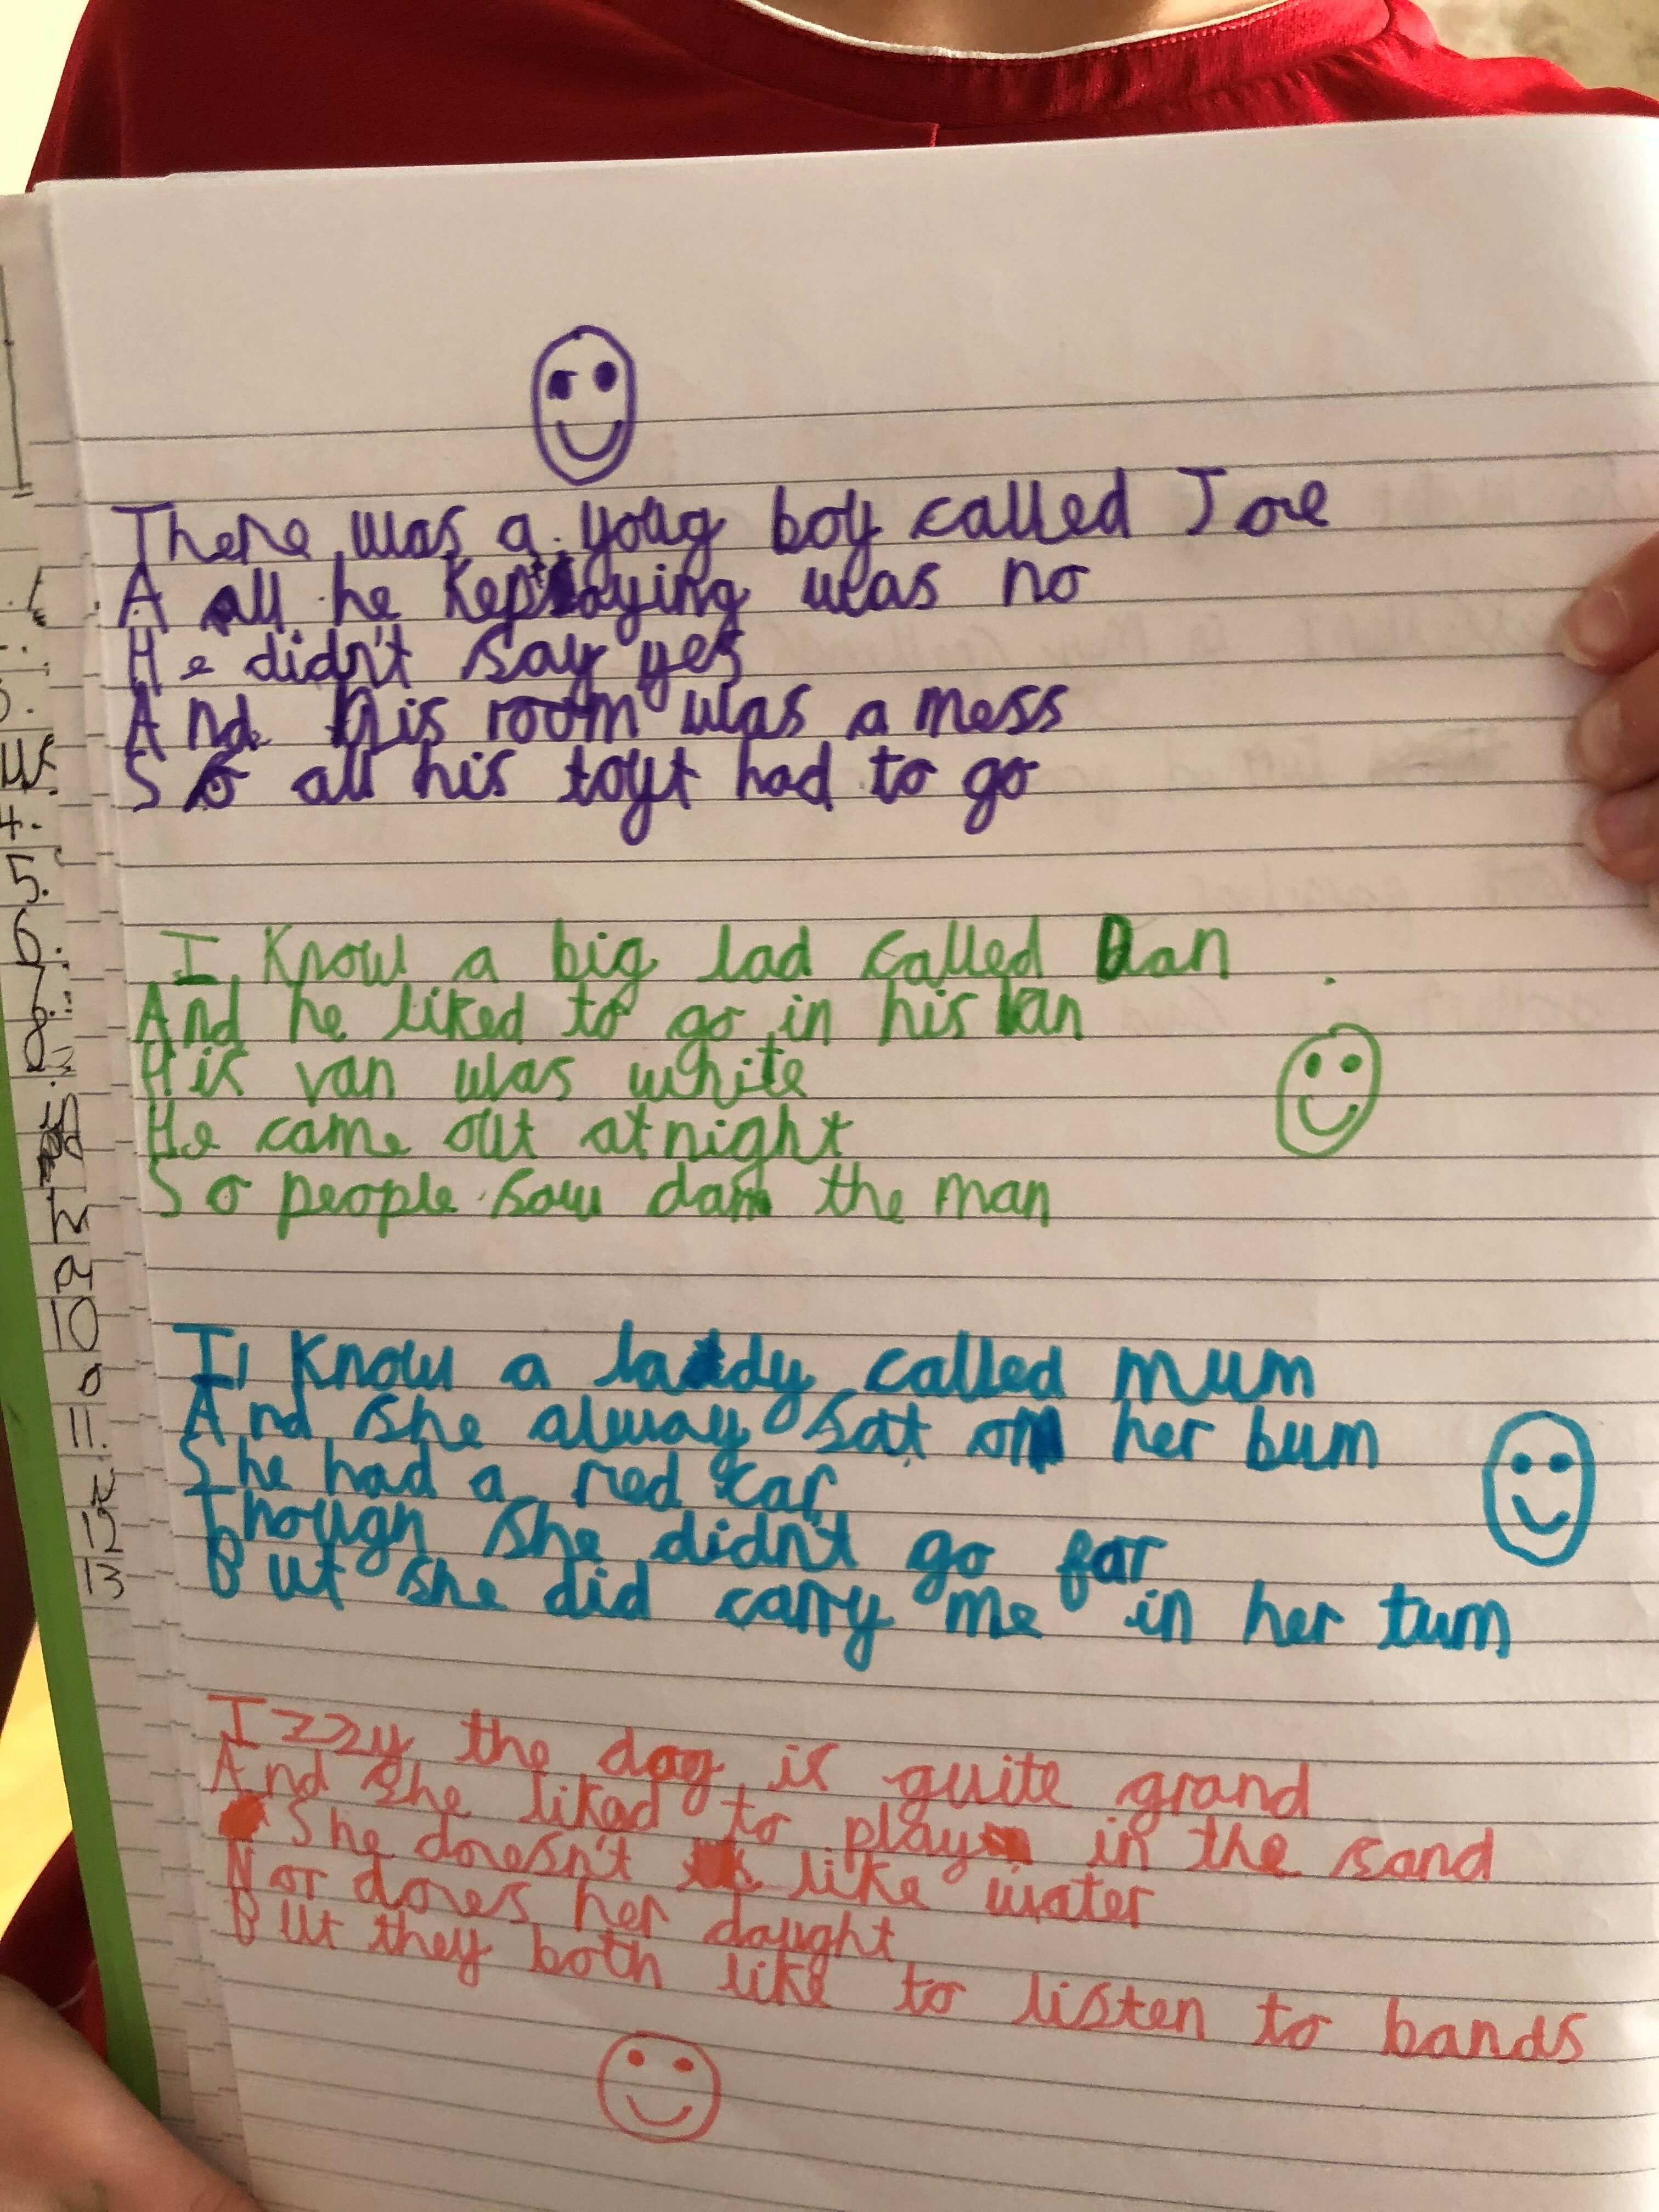 There was a youg boy called Joe
A all he kept saying was no
He didn't say yes
And his room was a mess
So all his toyt had to go
I know a big lad called Dan
And he liked to go in his van
His van was white
He came out at night
So people saw dan the man
I know a lady called mum
And she alway sat on her bum
She had a red car
Though she didn't go far
But she did carry me in her tum
Izzy the dog is quite grand
And she liked to play in the sand
She doesn't like water
Nor does her daught
But they both like to listen to bands
4.
5.
6.
7.
8.
10
11.
12
13